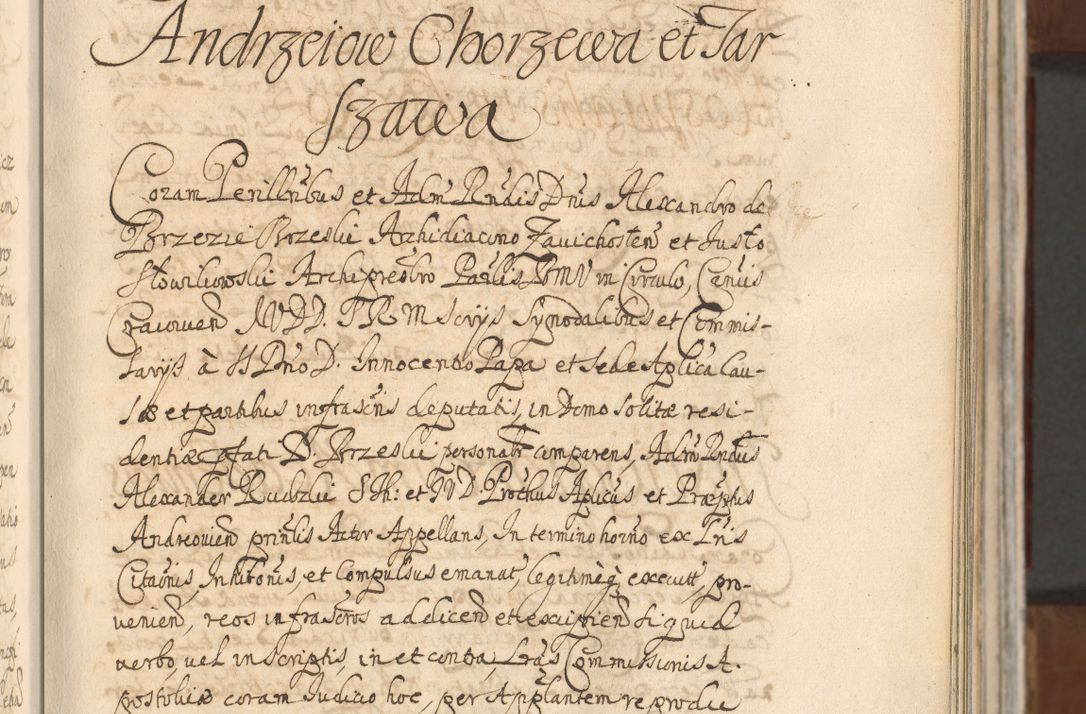 Andrzeiow Chorzewa et Jar
szawa
Coram Perillribus et Adm Rndis Dnis Alexandro de
Brzezie Brzeski Archidiacono Zavichosten et Justo
Słowikowski Archipresbro Paulis BMV in Circulo, Canuis
Cracovien JVDD. PRM Scrijs Synodalibus et Commis-
sarijs à SS Dno D. Innocentio Papa et Sede Aplica Cau-
sæ et partibus infrascriis deputatis, in Domo solitæ resi-
dentiæ pfati D. Brzeski personalr comparens, Adm Rndus
Alexander Rudzki STh: et JVD. Prothus Aplicus et Præptus
Andreovien prinlis Actor Appellans, In termino horno ex Lris
Citaonis, Inhibonis, et Compulsus emanat, legitimeq executt, pro-
venien, reos infrascros ad dicen et excipien si quid
verbo, vel in scriptis, in et contra Lras Commissionis A-
postolicæ coram Judicio hoc, per Applantem reprodu